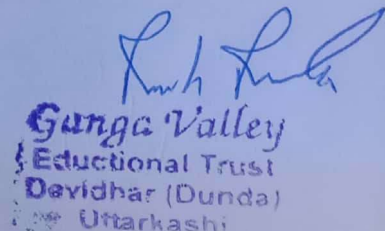 Ganga Valley
Eductional Trust
Devidhar (Dunda)
Uttarkashi